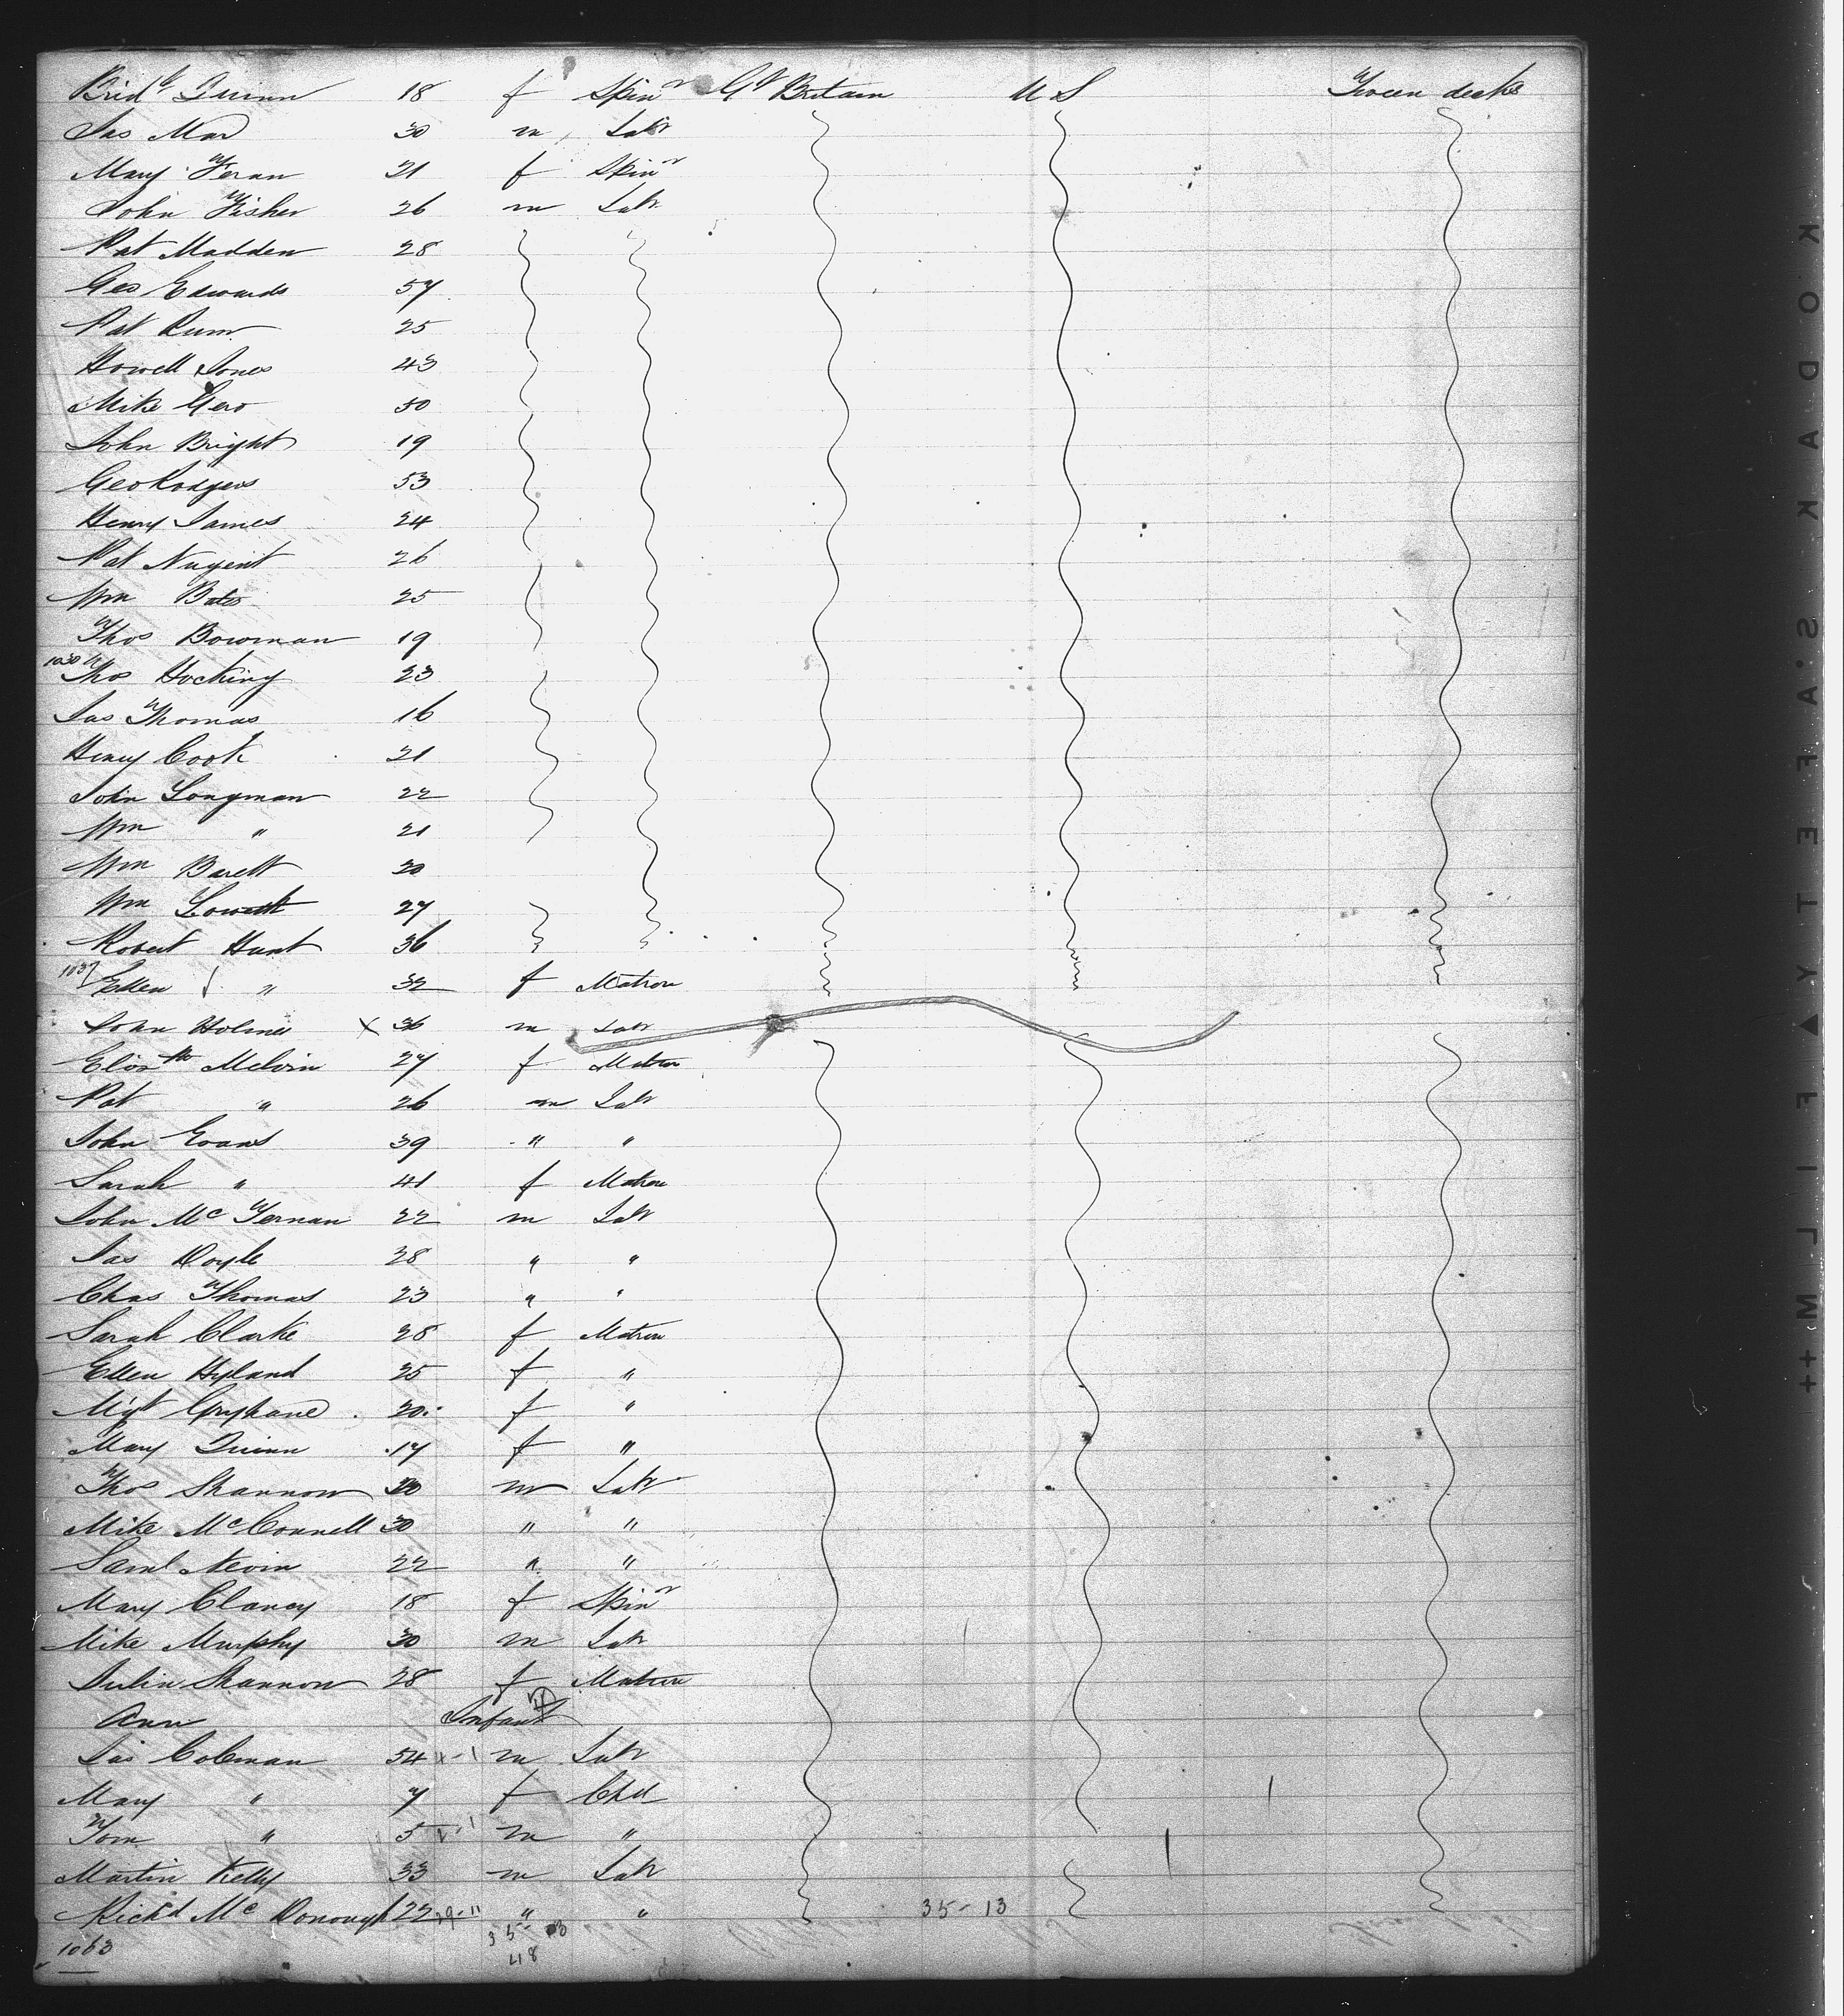 Bridt Quinn 18 f Spinr Gt Britain U S Tween decks
Jas Mar 30 m Labr
Mary Feran 21 f Spinr
John Fisher 26 m Labr
Pat Madden 28
Geo Edwards 57
Pat 25
Howell Jones 43
Mike Gero 50
John Bright 19
Geo Rodgers 53
Henry James 24
Pat Nugent 26
Wm Bates 25
Thos Bowman 19
1030 Thos Hocking 23
Jas Thomas 16
Henry Cook 21
John Longman 22
Wm " 21
Wm Barett 30
Wm Lowett 27
Robert Hunt 36
1037 Ellen " 32 f Matron
John Holmes X 36 m Labr
Elizth Melvin 27 f Matron
Pat " 26 m Labr
John Evans 39 " "
Sarah " 41 f Matron
John Mc Fernan 22 m Labr
Jas Doyle 28 " "
Chas Thomas 23 " "
Sarah Clarke 28 f Matron
Ellen Hyland 25 f "
Mgt 20 f "
Mary Quinn 17 f "
Thos Shannon 30 m Labr
Mike McConnell 30 " "
Saml Nevin 22 " "
Mary Clancy 18 f Spinr
Mike Murphy 30 m Labr
Julia Shannon 28 f Matron
Ann Infant
Jas Coleman 54 x-1 m Labr
Mary " 7 f Chd
Tom " 5 m "
Martin Kelly 33 m Labr
Richd Mc Donough 22 29-11 " " 35-13
35 13
1063 48
KODAK SAFETY FILM ++